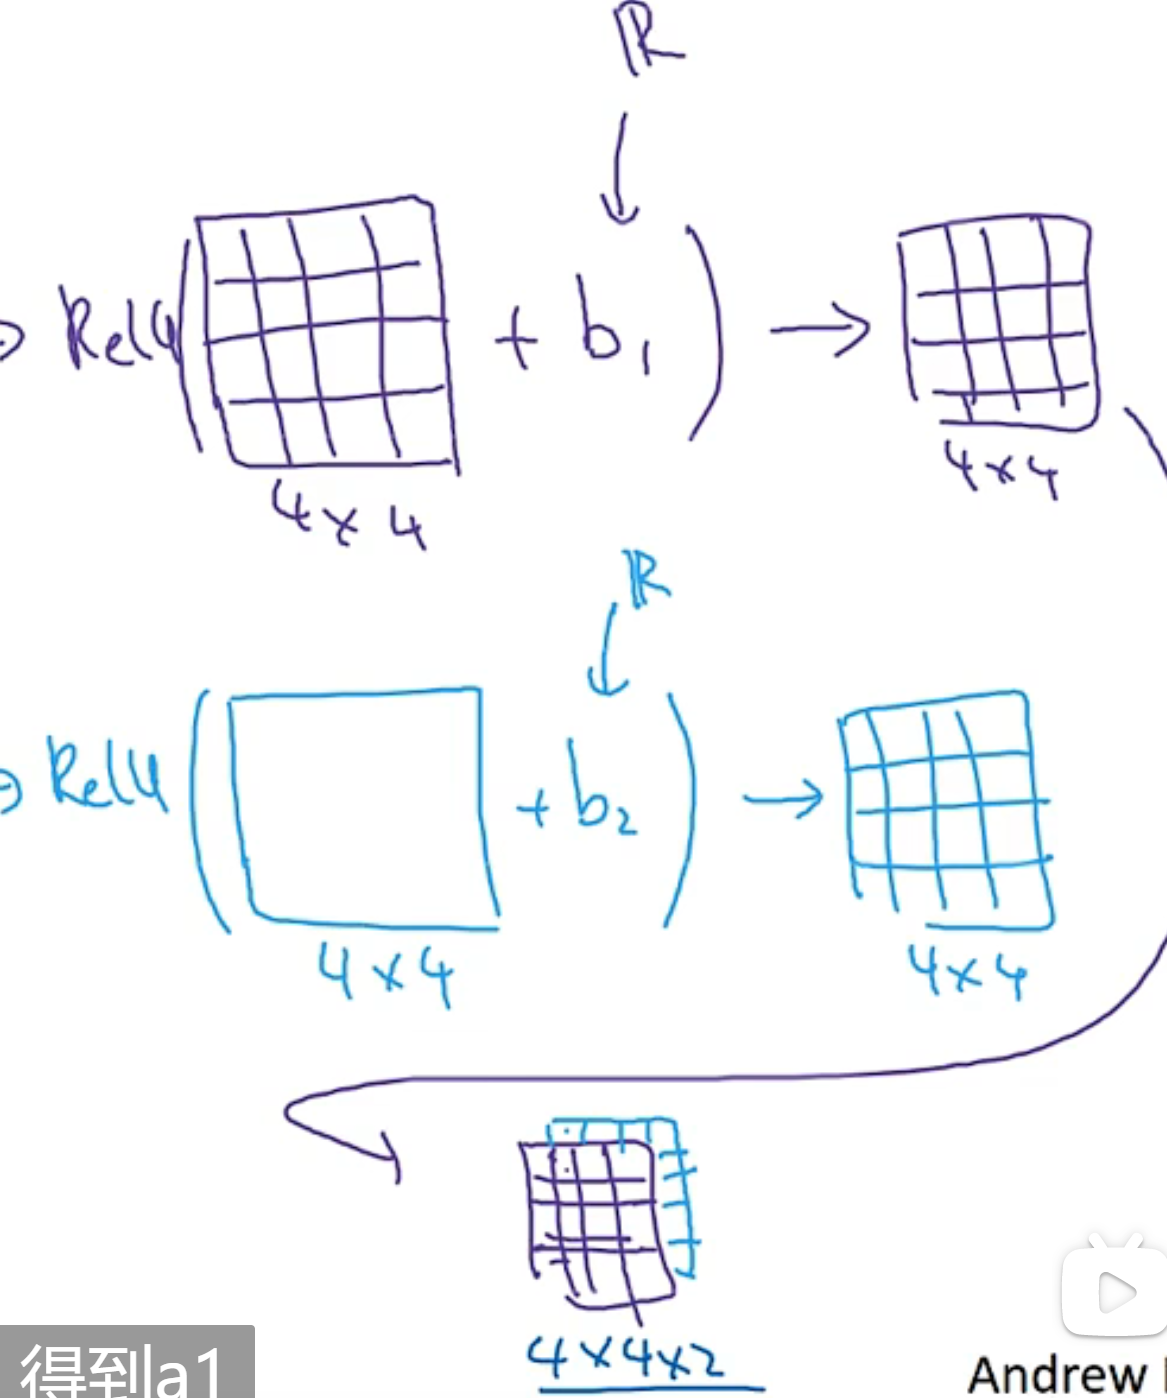 ℝ
ReLU( + b₁ ) →
4 x 4
4 x 4
ℝ
ReLU( + b₂ ) →
4 x 4
4 x 4
4x4x2
得到a1
Andrew